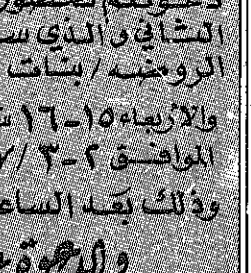 دعوتكم لحضور
الثاني والذي س
الروضه / بنات
والأربعاء ١٥-١٦
الموافق ٢-٣ /٧
وذلك بعد الساع
والدعوة